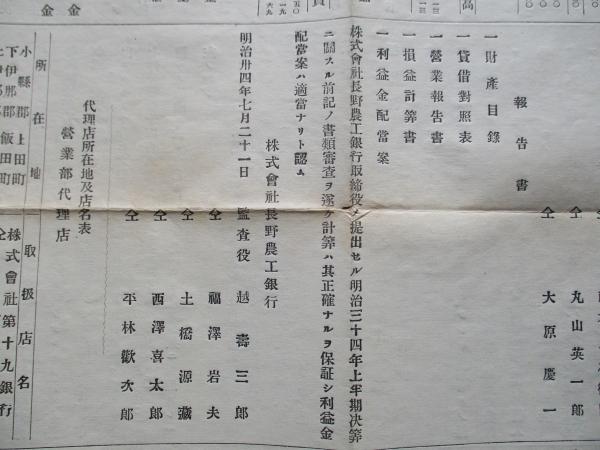 仝 丸山英一郎
仝 大原慶一
報告書
一財產目錄
一貸借對照表
一營業報告書
一損益計算書
一利益金配當案
株式會社長野農工銀行取締役ノ提出セル明治三十四年上半期决算
ニ關スル前記ノ書類審査ヲ遂ケ計算ハ其正確ナルヲ保証シ利益金
配當案ハ適當ナリト認ム
株式會社長野農工銀行
明治卅四年七月二十一日 監査役 越壽三郎
仝 福澤岩夫
仝 土橋源藏
仝 西澤喜太郎
仝 平林歡次郎
代理店所在地及店名表
營業部代理店
所在地 取扱店名
小縣郡上田町 株式會社第十九銀行
下伊那郡飯田町 仝